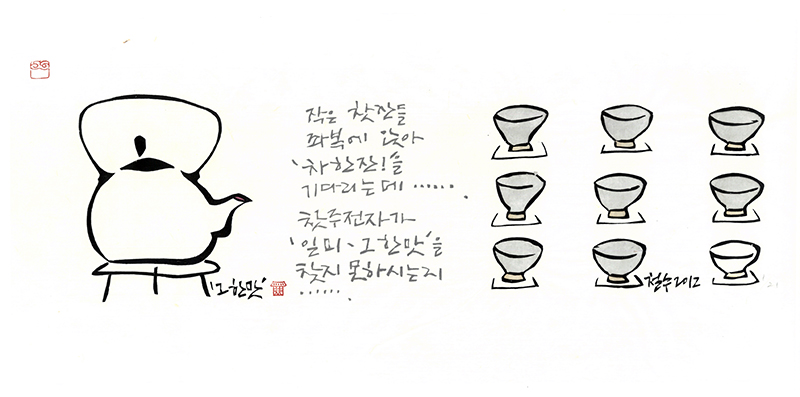 작은 찻잔들
좌복에 앉아
'차 한 잔!'을
기다리는데 ······.
찻주전자가
'일미·그 한 맛'을
찾지 못하시는지
······.
'그 한 맛'
철수 2012